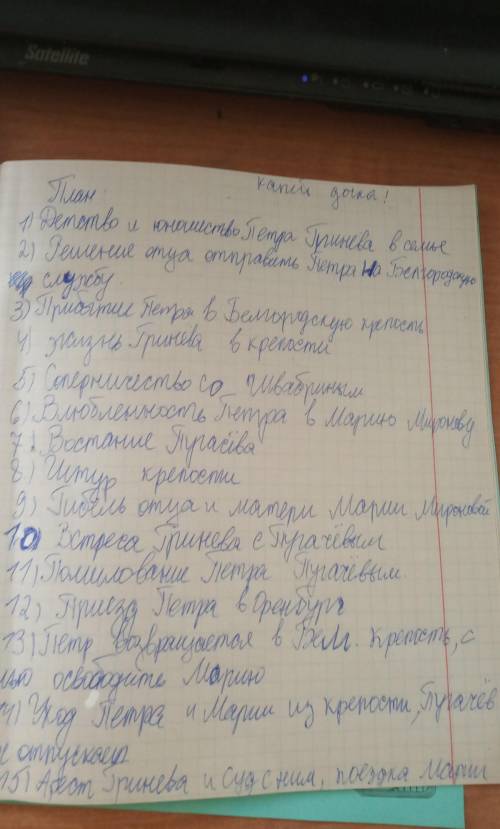 Satellite
План. капит дочка!
1) Детство и юношество Петра Гринева в семье
2) Решение отца отправить Петра на Белгородскую
службу.
3) Прибытие Петра в Белгородскую крепость
4) Жизнь Гринева в крепости
5) Соперничество со Швабриным
6) Влюбленность Петра в Марию Миронову
7) Востание Пугачёва
8) Штур крепости
9) Гибель отца и матери Марии Мироновой
10) Встреса Гринева с Пугачёвым
11) Помилование Петра Пугачёвым.
12) Приезд Петра в Оренбург
13) Петр возвращается в Белг. крепость, с
лью освободите Марию
14) Уход Петра и Марии из крепости, Пугачёв
отпускает
15) Арест Гринева и суд с ним, поездка Марии